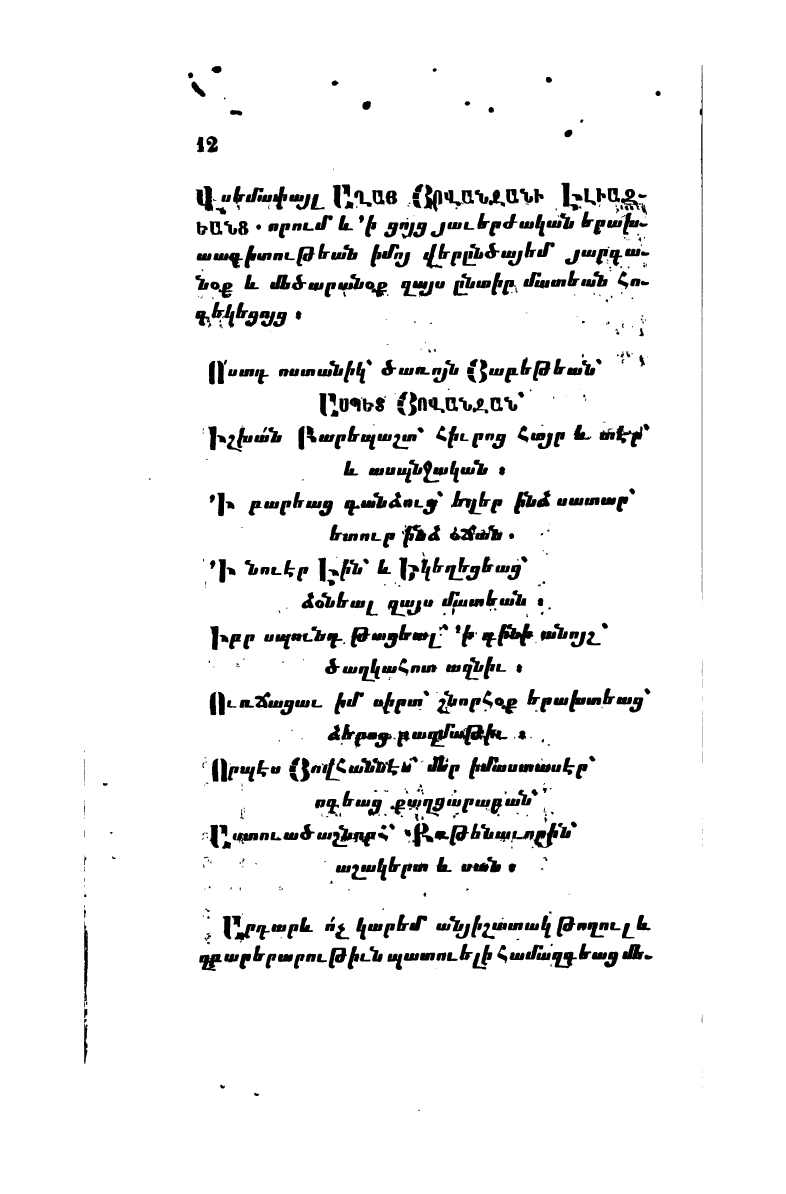 12
Վսեմափայլ ԱՂԱՅ ՅՈՎԱՆՋԱՆԻ ԷԼԻԱԶ-
ԵԱՆՑ. որում և ՚ի ցոյց յաւերժական երախ-
տագիտութեան իմոյ վերընծայեմ յարգա-
նօք և մեծարանօք զայս ընտիր մատեան Հո-
գեկեցոյց։
Ո՛ստդ ոստանիկ՝ ծառոյն Յաբեթեան՝
ԱՍՊԵՏ ՅՈՎԱՆՋԱՆ՝
Իշխան Բարեպաշտ՝ Հիւրոց Հայր և տէր՝
և ասպնջական։
՚Ի բարեաց գանձուց՝ եղեր ինձ սատար՝
ետուր ինձ օճան.
՚Ի նուէր Էին՝ և Եկեղեցեաց՝
ձօնեալ զայս մատեան։
Իբր սպունգ թացեալ՝ ՚ի գինի անոյշ՝
ծաղկահոտ ազնիւ։
Ուռճացաւ իմ սիրտ՝ շնորհօք երախտեաց՝
ձերոց բազմաթիւ։
Որպէս Յովհաննէս՝ մեր իմաստասէր՝
ոգեաց քաղցրաբան՝
Աստուածաշնորհ՝ Քռթենաւորին՝
աշակերտ և սան։
Արդարև ո՛չ կարեմ անյիշատակ թողուլ և
զբարերարութիւն պատուելի Համազգեաց մե-